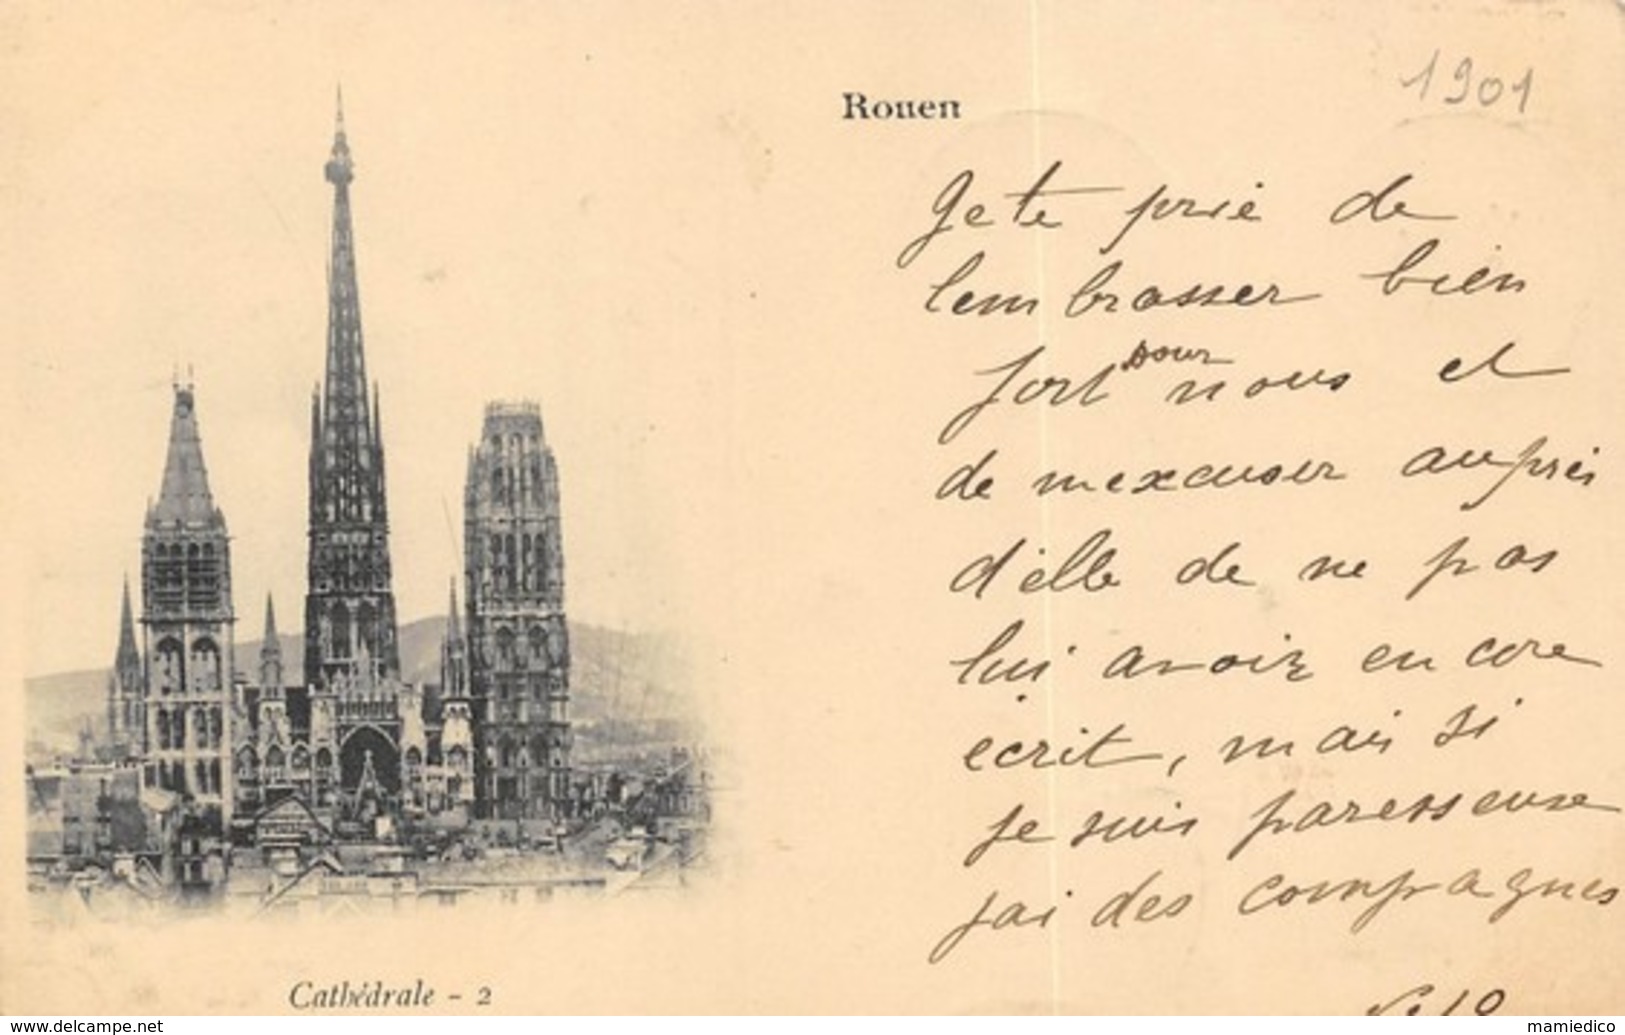 Rouen
1901
Je te prie de
lem brasser bien
pour
fort nous et
de mexcuser auprès
d'elle de ne pas
lui avoir en core
écrit, mais si
je suis paresseuse
jai des compagnes
Cathédrale - 2
www.delcampe.net
mamiedico